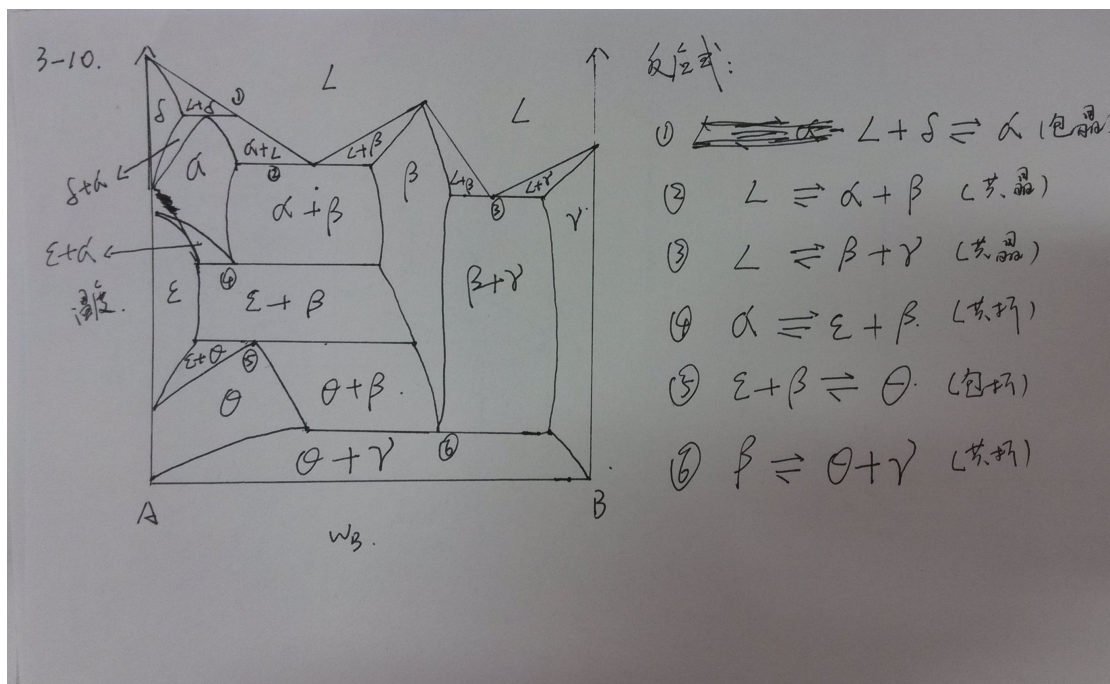 3-10.
L
L
δ
L+δ
①
δ+α
α
α+L
②
L+β
α+β
β
L+β
③
L+γ
γ
ε+α
④
温度.
ε
ε+β
β+γ
ε+θ
⑤
θ
θ+β.
θ+γ
⑥
A
B
WB.
反应式:
① L+δ⇌α (包晶)
② L ⇌ α+β (共晶)
③ L ⇌ β+γ (共晶)
④ α ⇌ ε+β. (共析)
⑤ ε+β ⇌ θ. (包析)
⑥ β ⇌ θ+γ (共析)